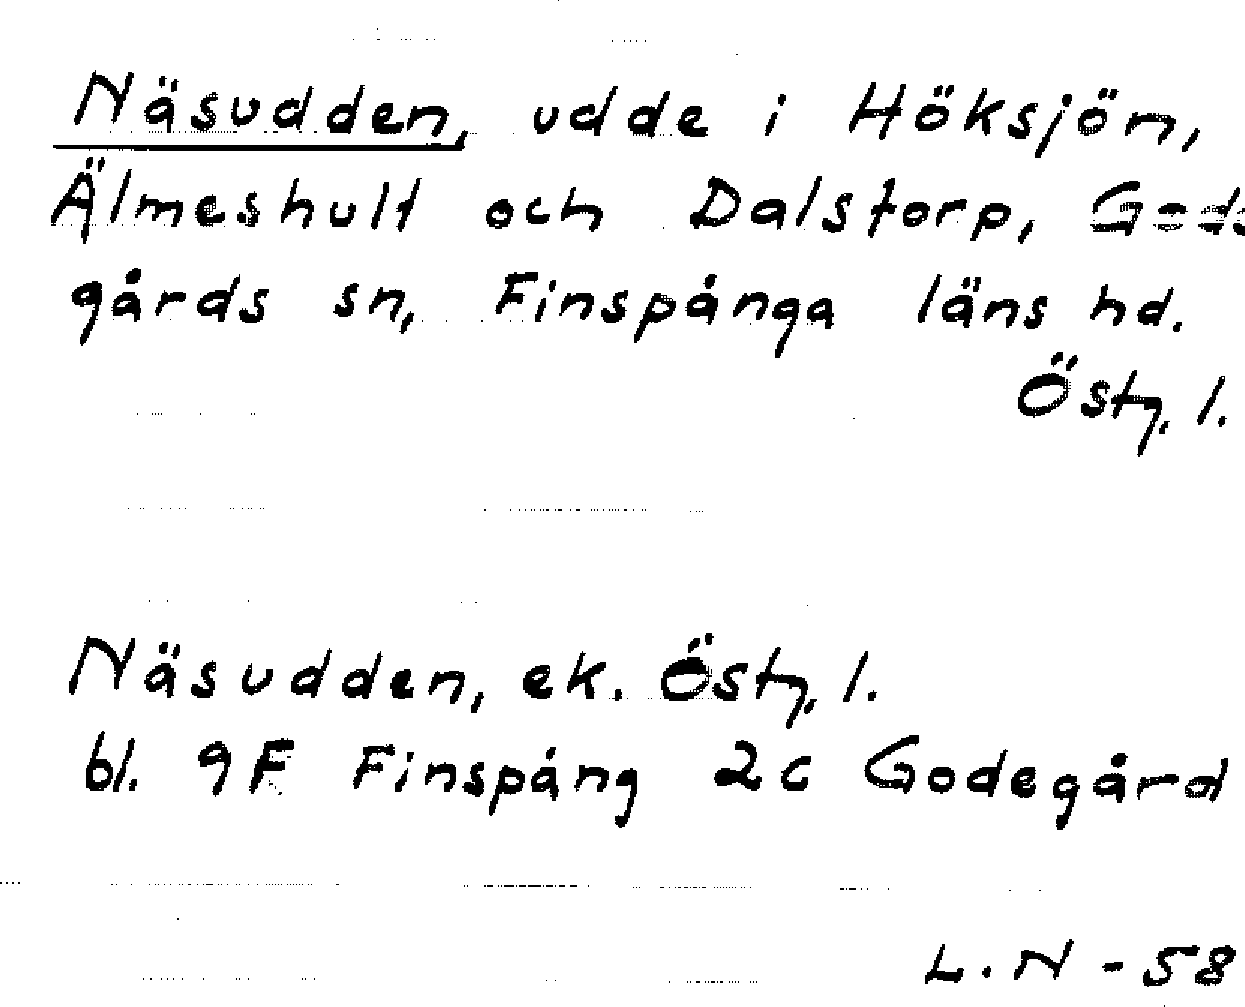 Näsudden, udde i Höksjön,
Älmeshult och Dalstorp,
gårds sn, Finspånga läns hd.
Östg. l.
Näsudden, ek. Östg. l.
bl. 9F Finspång 2c Godegård
L.N - 58